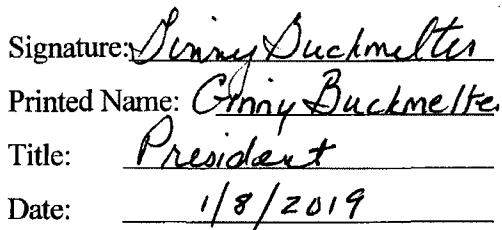 Signature: Ginny Buckmelter
Printed Name: Ginny Buckmelte
Title: President
Date: 1/8/2019